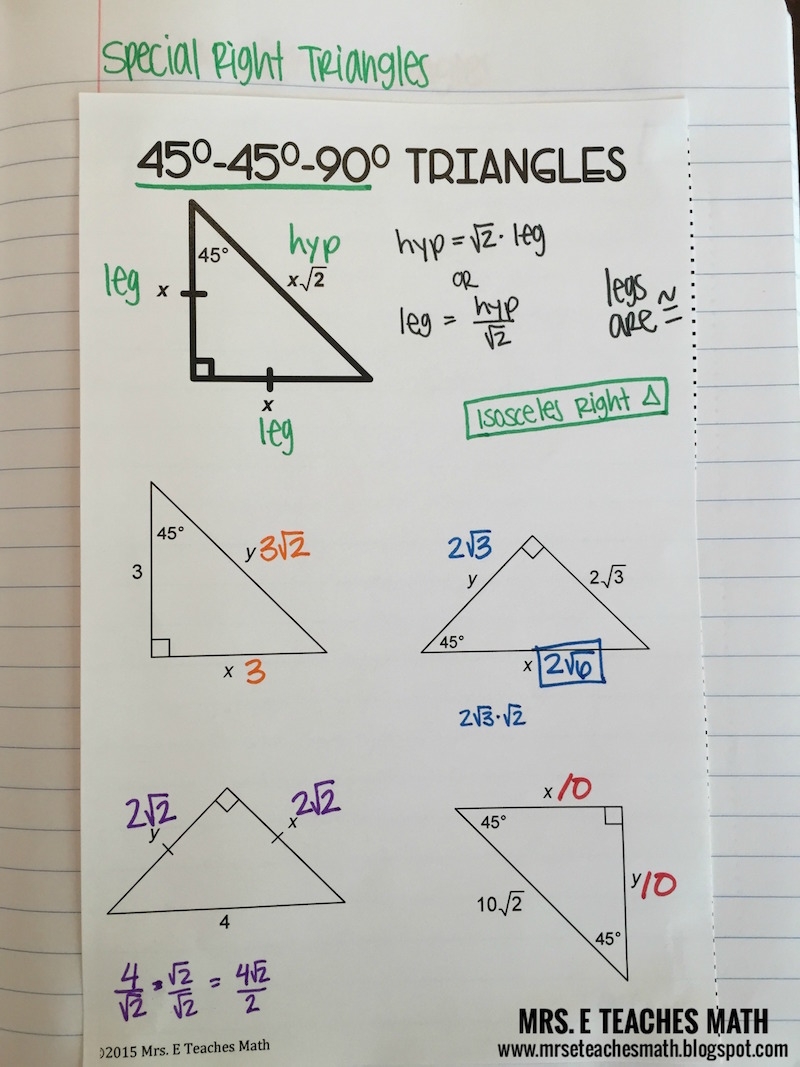 Special Right Triangles
45°-45°-90° TRIANGLES
45°
hyp
x√2
leg x
x
leg
hyp = √2 · leg
OR
leg = hyp/√2
legs
are ≅
Isosceles Right △
45°
3
y 3√2
x 3
2√3
y
2√3
45°
x 2√6
2√3·√2
2√2
y
2√2
x
4
4/√2 · √2/√2 = 4√2/2
x 10
45°
y 10
10√2
45°
©2015 Mrs. E Teaches Math
MRS. E TEACHES MATH
www.mrseteachesmath.blogspot.com